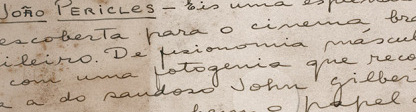 João Pericles — Eis uma
escoberta para o cinema br
ileiro. De fisionomia máscul
com uma fotogenia que reco
a a do saudoso John Gilber
o papel